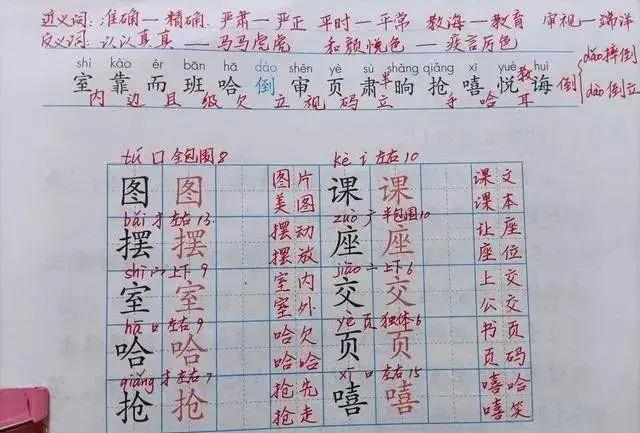 近义词: 准确—精确 严肃—严正 平时—平常 教诲—教育 审视—端详
反义词: 认认真真—马马虎虎 和颜悦色—疾言厉色
shì kào ér bān hā dáo shěn yè sù shǎng qiǎng xī yuè huì
室 靠 而 班 哈 倒 审 页 肃 晌 抢 嘻 悦 诲 倒 { dǎo 摔倒
内 边 且 级 欠 立 视 码 立 半 手 哈 耳 教 dào 倒立
tú 囗 全包围 8 kè 讠 左右 10
图 图 图片 美图 课 课 课文 课本
bǎi 扌 左右 13 zuò 广 半包围 10
摆 摆 摆动 摆放 座 座 让座 座位
shì 宀 上下 9 jiāo 亠 上下 6
室 室 室内 室外 交 交 上交 公交
hā 口 左右 9 yè 页 独体 6
哈 哈 哈欠 哈哈 页 页 书页 页码
qiǎng 扌 左右 7 xī 口 左右 15
抢 抢 抢先 抢走 嘻 嘻 嘻哈 嘻笑